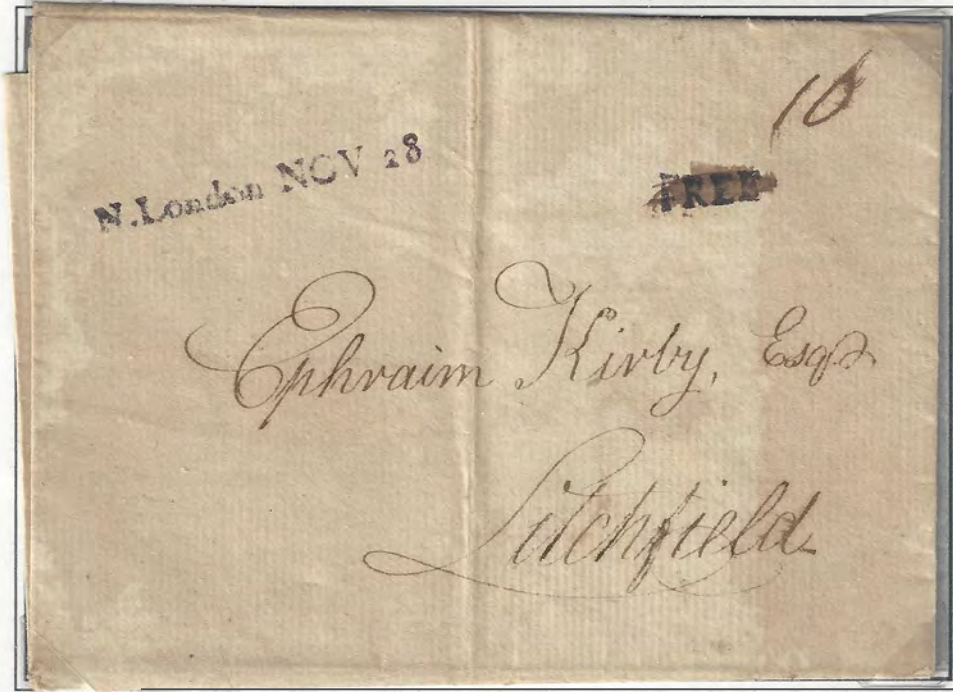 10
N.London NOV 28
FREE
Ephraim Kirby, Esqr
Litchfield